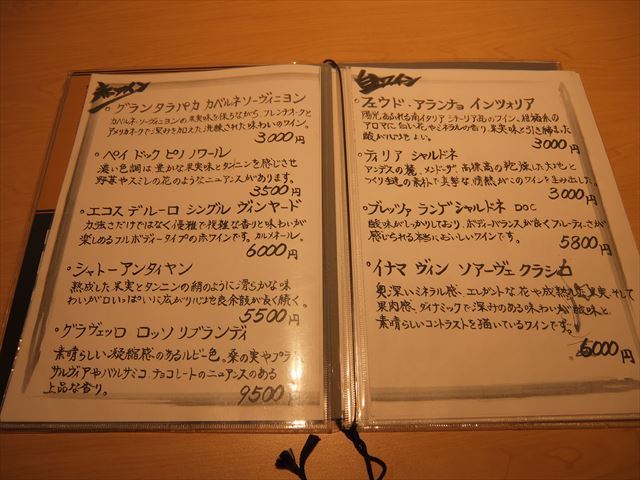 赤ワイン
グラン タラパカ カベルネソーヴィニヨン
カベルネ・ソーヴィニヨンの果実味を保ちながら、フレンチオークと
アメリカオークで深みを加えた洗練された味わいのワイン。
3000円
ペイ ドック ピノ ノワール
濃い色調は豊かな果実味とタンニンを感じさせ
野苺やスミレの花のようなニュアンスがあります。
3500円
エコス デ ルーロ シングル ヴィンヤード
力強さだけではなく優雅で複雑な香りと味わいが
楽しめるフルボディータイプの赤ワインです。カルメネール。
6000円
シャトー アンタイヤン
熟成した果実とタンニンの絹のように滑らかな味
わいが口いっぱいに広がり心地良余韻が長く続く。
5500円
グラヴェッロ ロッソ リブランディ
素晴らしい凝縮感のあるルビー色。桑の実やプラム、
サルヴィアやバルサミコ、チョコレートのニュアンスのある
上品な香り。
9500円
白ワイン
フェウド・アランチョ インツォリア
陽光あふれる南イタリア シチーリア島のワイン。柑橘系の
アロマに白い花やミネラルの香り、果実味と引き締まった
酸が心地よい。
3000円
ティリア シャルドネ
アンデスの麓、メンドーサ。高標高の乾燥した大地と
つくり手達の素朴で真摯な情熱がこのワインを生み出した。
3000円
ブレッツァ ランゲ シャルドネ DOC
酸味がしっかりしており、ボディーバランスが良くフルーティーさが
感じられる本当においしいワインです。
5800円
イナマ ヴィン ソアーヴェ クラシコ
奥深いミネラル感、エレガントな花や成熟した果実、そして
果肉感、ダイナミックで深みのある味わいが酸味と
素晴らしいコントラストを描いているワインです。
6000円